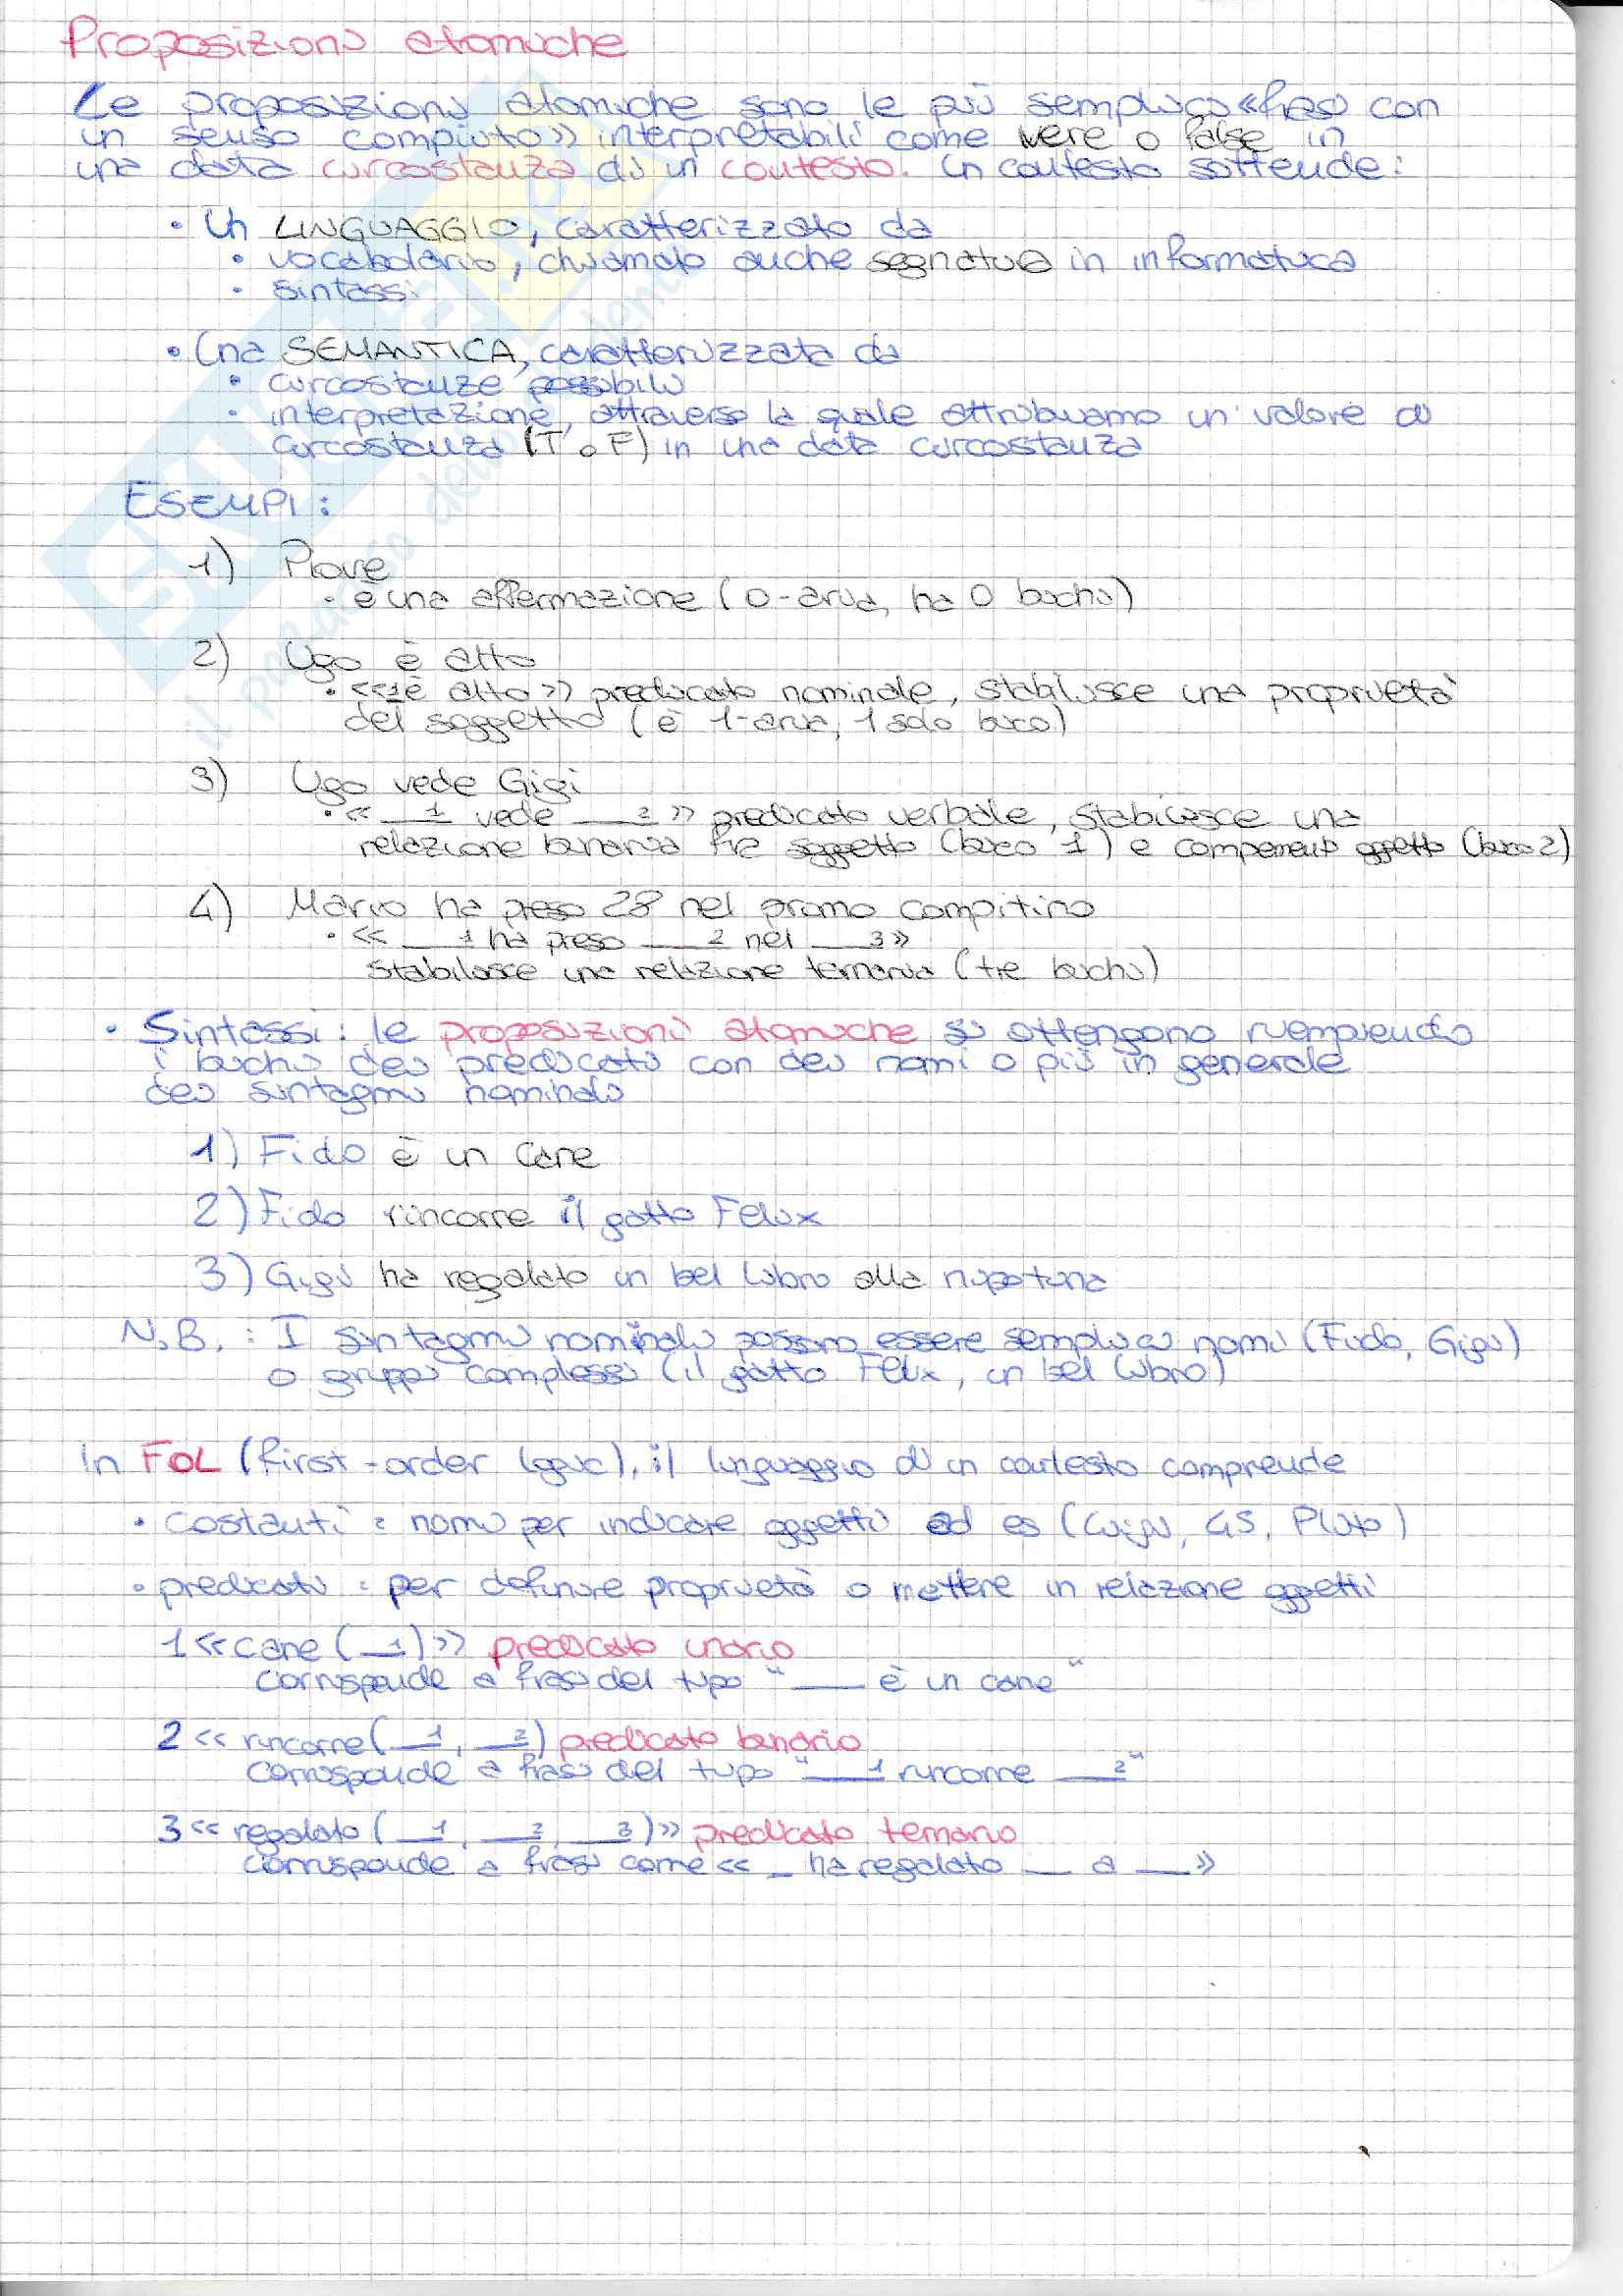 Proposizioni atomiche
Le proposizioni atomiche sono le più semplici «frasi con
un senso compiuto» interpretabili come vere o false in
una data circostanza di un contesto. Un contesto sottende:
• Un LINGUAGGIO, caratterizzato da
• vocabolario, chiamato anche segnatura in informatica
• sintassi
• Una SEMANTICA, caratterizzata da
• circostanze possibili
• interpretazione, attraverso la quale attribuiamo un valore di
circostanza (T o F) in una data circostanza
ESEMPI:
1) Piove
• è una affermazione (0-aria, ha 0 buchi)
2) Ugo è alto
• «_1 è alto» predicato nominale, stabilisce una proprietà
del soggetto (è 1-aria, 1 solo buco)
3) Ugo vede Gigi
• «___1 vede ___2» predicato verbale, stabilisce una
relazione binaria fra soggetto (buco 1) e complemento oggetto (buco 2)
4) Mario ha preso 28 nel primo compitino
• «___1 ha preso ___2 nel ___3»
stabilisce una relazione ternaria (tre buchi)
• Sintassi: le proposizioni atomiche si ottengono riempiendo
i buchi dei predicati con dei nomi o più in generale
dei sintagmi nominali
1) Fido è un cane
2) Fido rincorre il gatto Felix
3) Gigi ha regalato un bel libro alla nipotina
N.B.: I sintagmi nominali possono essere semplici nomi (Fido, Gigi)
o gruppi complessi (il gatto Felix, un bel libro)
In FOL (first-order logic), il linguaggio di un contesto comprende
• costanti: nomi per indicare oggetti ad es (Luigi, 45, Pluto)
• predicati: per definire proprietà o mettere in relazione oggetti
1 «cane (__1)» predicato unario
corrisponde a frasi del tipo "___ è un cane"
2 «rincorre(__1, __2) predicato binario
corrisponde a frasi del tipo "___1 rincorre ___2"
3 «regalato (__1, __2, __3)» predicato ternario
corrisponde a frasi come «_ ha regalato __ a __»
SKUOLA.net
il paradiso dello studente